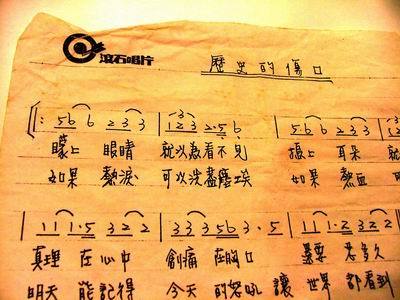 滾石唱片
歷史的傷口
5 6 6 2 3 3 1 2 3 2·5 6 5 6 6 2 3 3
矇上 眼睛 就以為看不見 摀上 耳朵 就
如果 熱淚 可以洗盡塵埃 如果 熱血 可
1 1 1·5 3 2 2 3 3 3 5 6 3·5 1 1 1·2 3 2 2
真理 在心中 創痛 在胸口 還要 忍多久
明天 能記得 今天 的怒吼 讓 世界 都看到